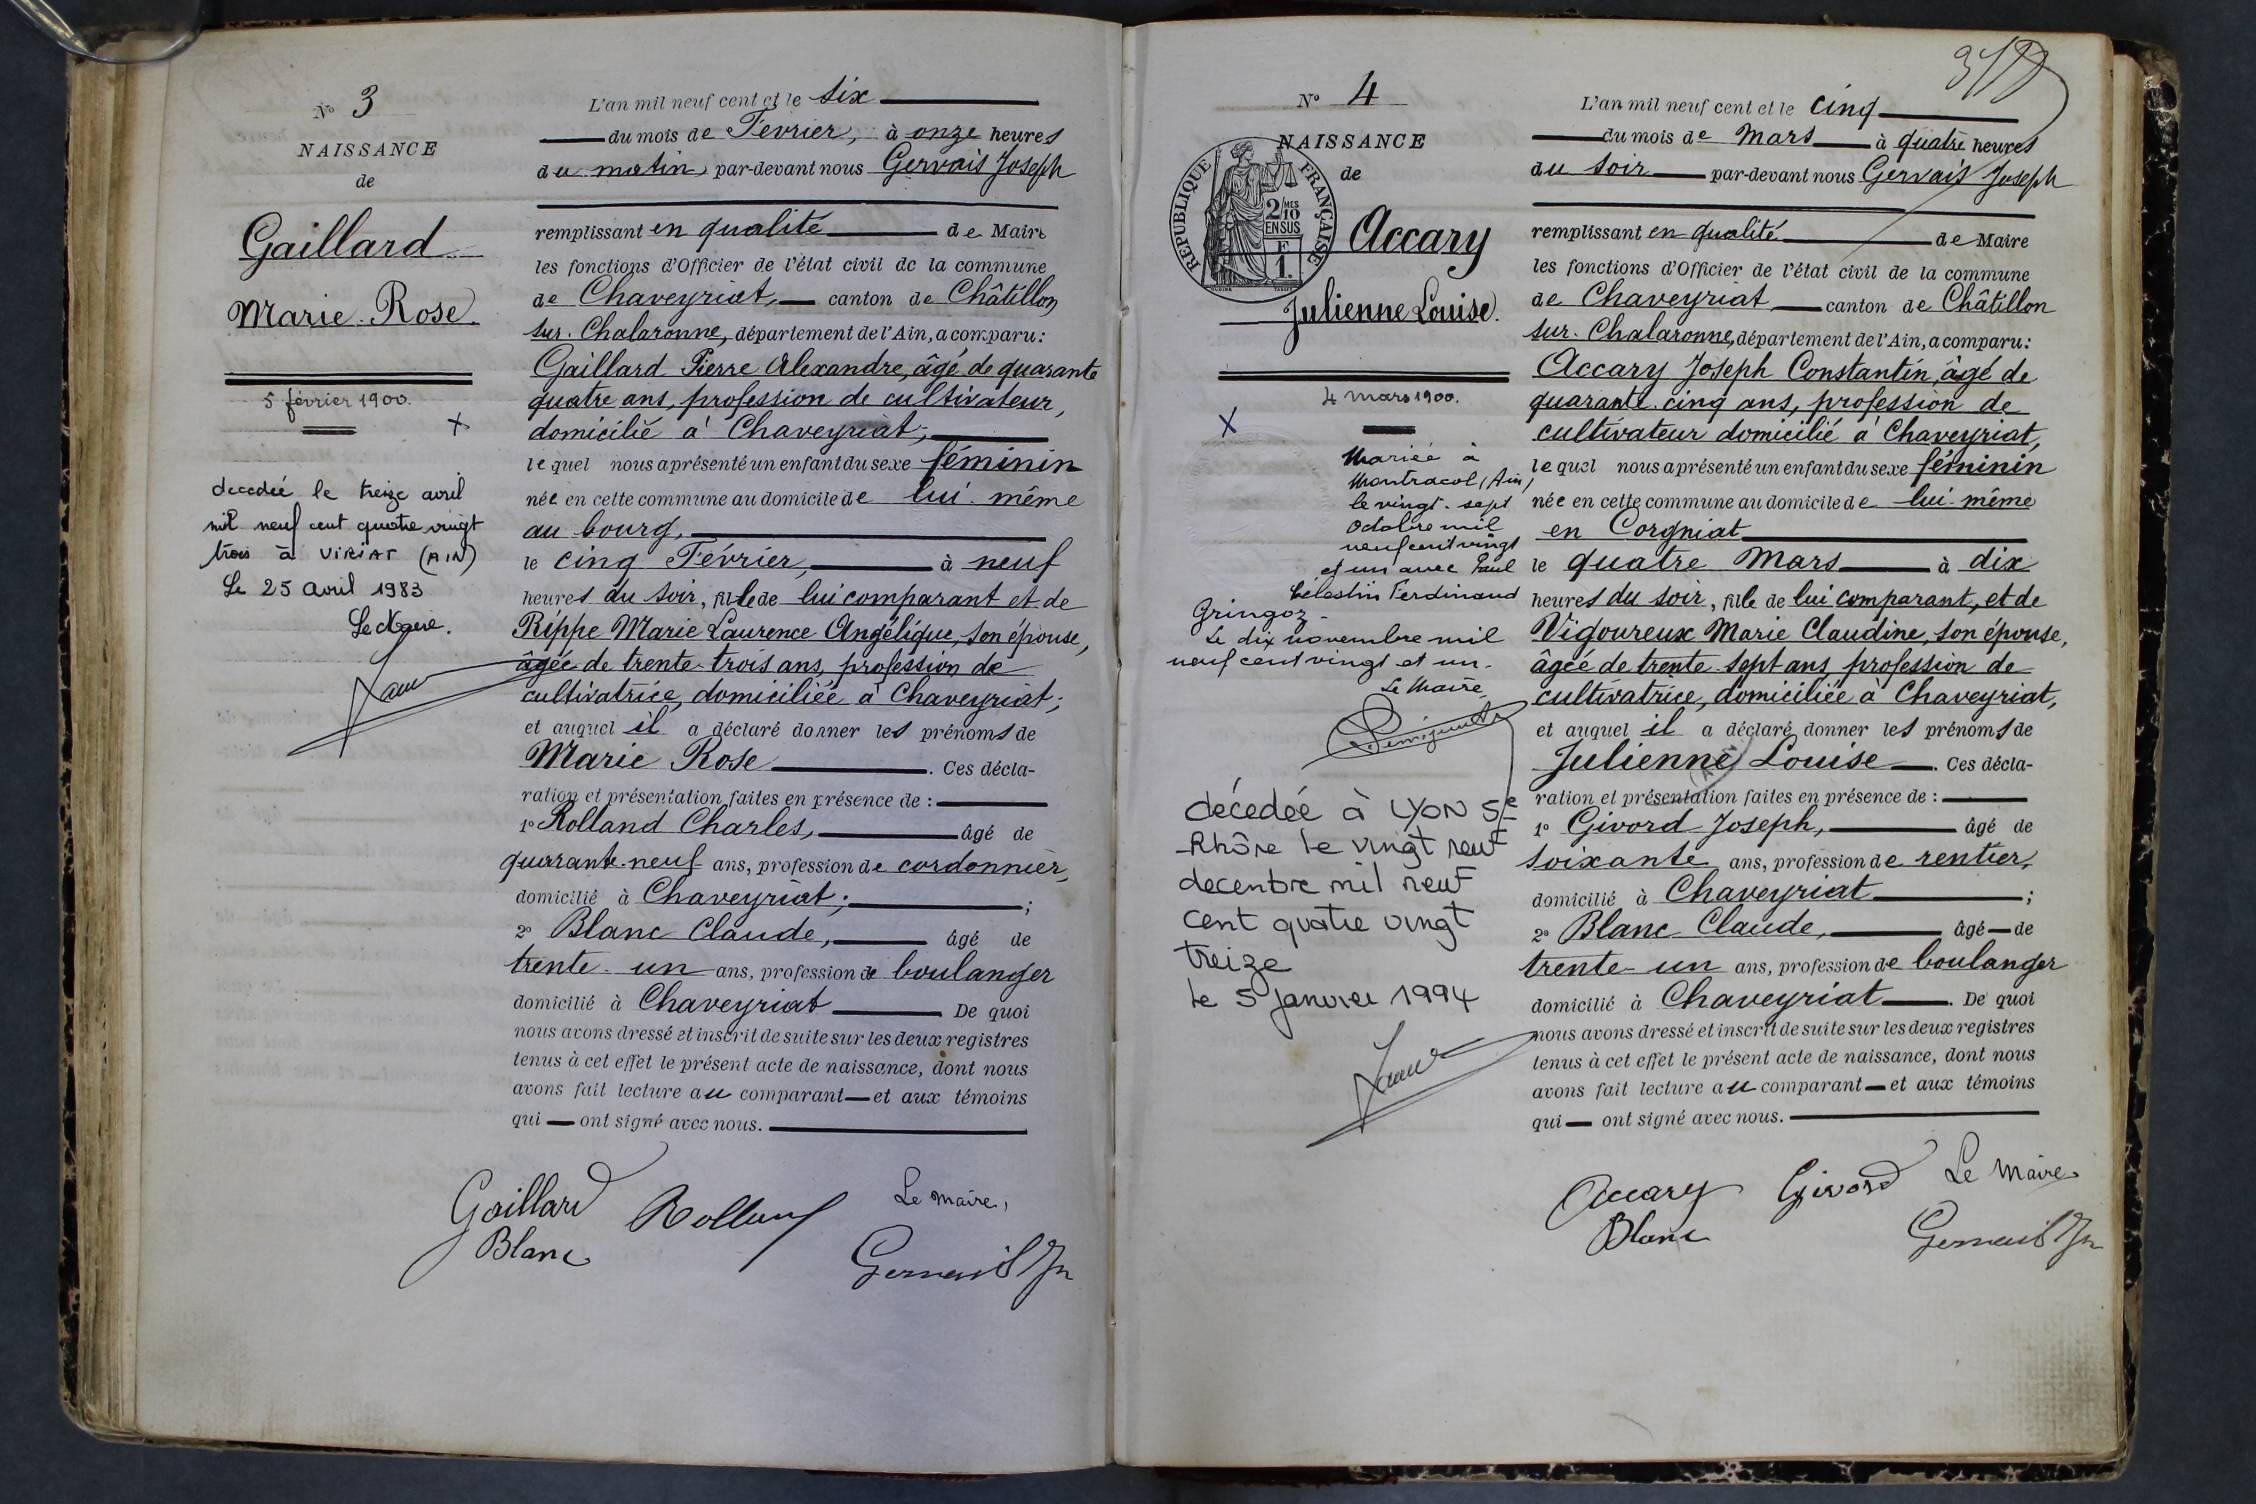 N° 3
NAISSANCE
de
Gaillard
Marie Rose.
5 février 1900.
X
decedée le treize avril
mil neuf cent quatre vingt
trois à VIRIAT (AIN)
Le 25 avril 1983
Le Maire.
L'an mil neuf cent et le six
du mois de Février, à onze heures
du matin, par-devant nous Gervais Joseph
remplissant en qualité de Maire
les fonctions d'Officier de l'état civil de la commune
de Chaveyriat, canton de Châtillon
sur-Chalaronne, département de l'Ain, a comparu:
Gaillard Pierre Alexandre, âgé de quarante
quatre ans, profession de cultivateur,
domicilié à Chaveyriat,
lequel nous a présenté un enfant du sexe féminin
née en cette commune au domicile de lui-même
au bourg,
le cinq Février, à neuf
heures du soir, fille de lui comparant et de
Rippe Marie Laurence Angélique, son épouse,
âgée de trente-trois ans, profession de
cultivatrice, domiciliée à Chaveyriat;
et auquel il a déclaré donner les prénoms de
Marie Rose. Ces décla-
ration et présentation faites en présence de :
1° Rolland Charles, âgé de
quarante-neuf ans, profession de cordonnier,
domicilié à Chaveyriat; ;
2° Blanc Claude, âgé de
trente-un ans, profession de boulanger
domicilié à Chaveyriat De quoi
nous avons dressé et inscrit de suite sur les deux registres
tenus à cet effet le présent acte de naissance, dont nous
avons fait lecture au comparant et aux témoins
qui ont signé avec nous.
Gaillard Rolland Le Maire,
Blanc Gervais Jh
378
N° 4
NAISSANCE
de
RÉPUBLIQUE FRANÇAISE
2/10 MES
EN SUS
F
1.
Accary
Julienne Louise.
4 mars 1900.
X
Mariée à
Montracol (Ain)
le vingt-sept
Octobre mil
neuf cent vingt
et un avec Paul
Célestin Ferdinand
Gringoz-
Le dix novembre mil
neuf cent vingt et un-
Le Maire,
décedée à LYON 5e
Rhône le vingt neuf
decembre mil neuf
cent quatre vingt
treize
le 5 Janvier 1994
L'an mil neuf cent et le cinq
du mois de Mars à quatre heures
du soir par-devant nous Gervais Joseph
remplissant en qualité de Maire
les fonctions d'Officier de l'état civil de la commune
de Chaveyriat canton de Châtillon
sur-Chalaronne, département de l'Ain, a comparu:
Accary Joseph Constantin, âgé de
quarante-cinq ans, profession de
cultivateur domicilié à Chaveyriat,
lequel nous a présenté un enfant du sexe féminin
née en cette commune au domicile de lui-même
en Corgniat
le quatre Mars à dix
heures du soir, fille de lui comparant, et de
Vigoureux Marie Claudine, son épouse,
âgée de trente-sept ans, profession de
cultivatrice, domiciliée à Chaveyriat,
et auquel il a déclaré donner les prénoms de
Julienne Louise. Ces décla-
ration et présentation faites en présence de :
1° Givord Joseph, âgé de
soixante ans, profession de rentier,
domicilié à Chaveyriat ;
2° Blanc Claude, âgé de
trente-un ans, profession de boulanger
domicilié à Chaveyriat. De quoi
nous avons dressé et inscrit de suite sur les deux registres
tenus à cet effet le présent acte de naissance, dont nous
avons fait lecture au comparant et aux témoins
qui ont signé avec nous.
Accary Givord Le Maire
Blanc Gervais Jh